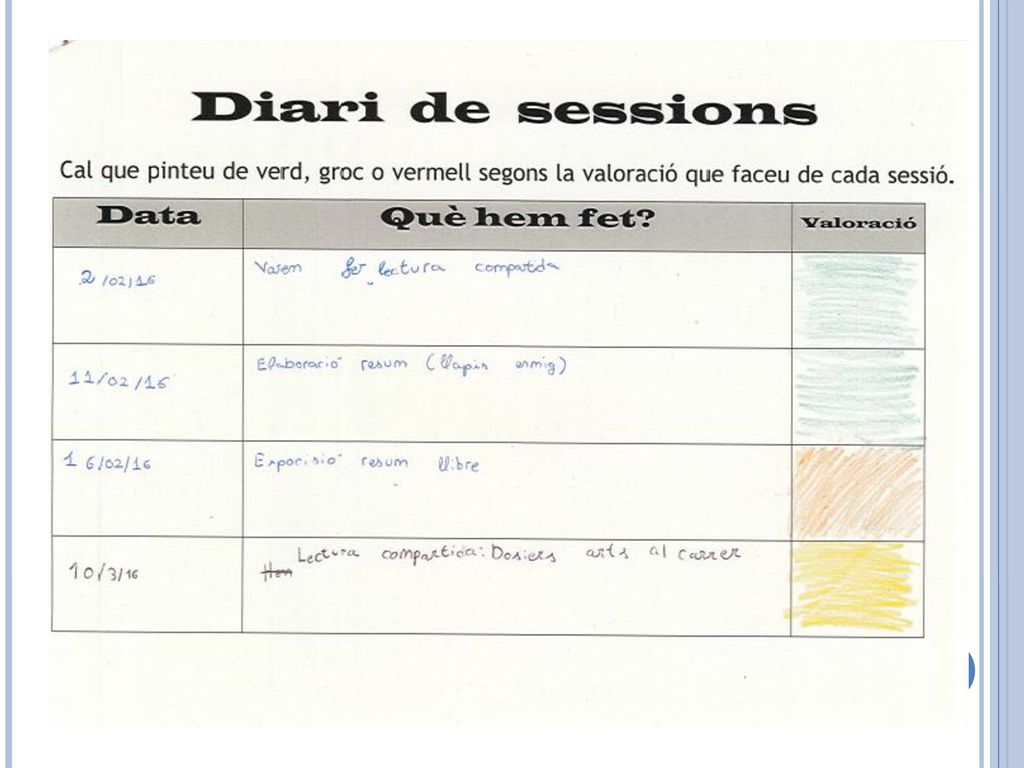 Diari de sessions
Cal que pinteu de verd, groc o vermell segons la valoració que faceu de cada sessió.
Data Què hem fet? Valoració
2/02/16 Varem fer lectura compartida
11/02/16 Elaboració resum (llapis enmig)
16/02/16 Exporisió resum llibre
Lectura compartida: Dosiers arts al carrer
10/3/16 Hem